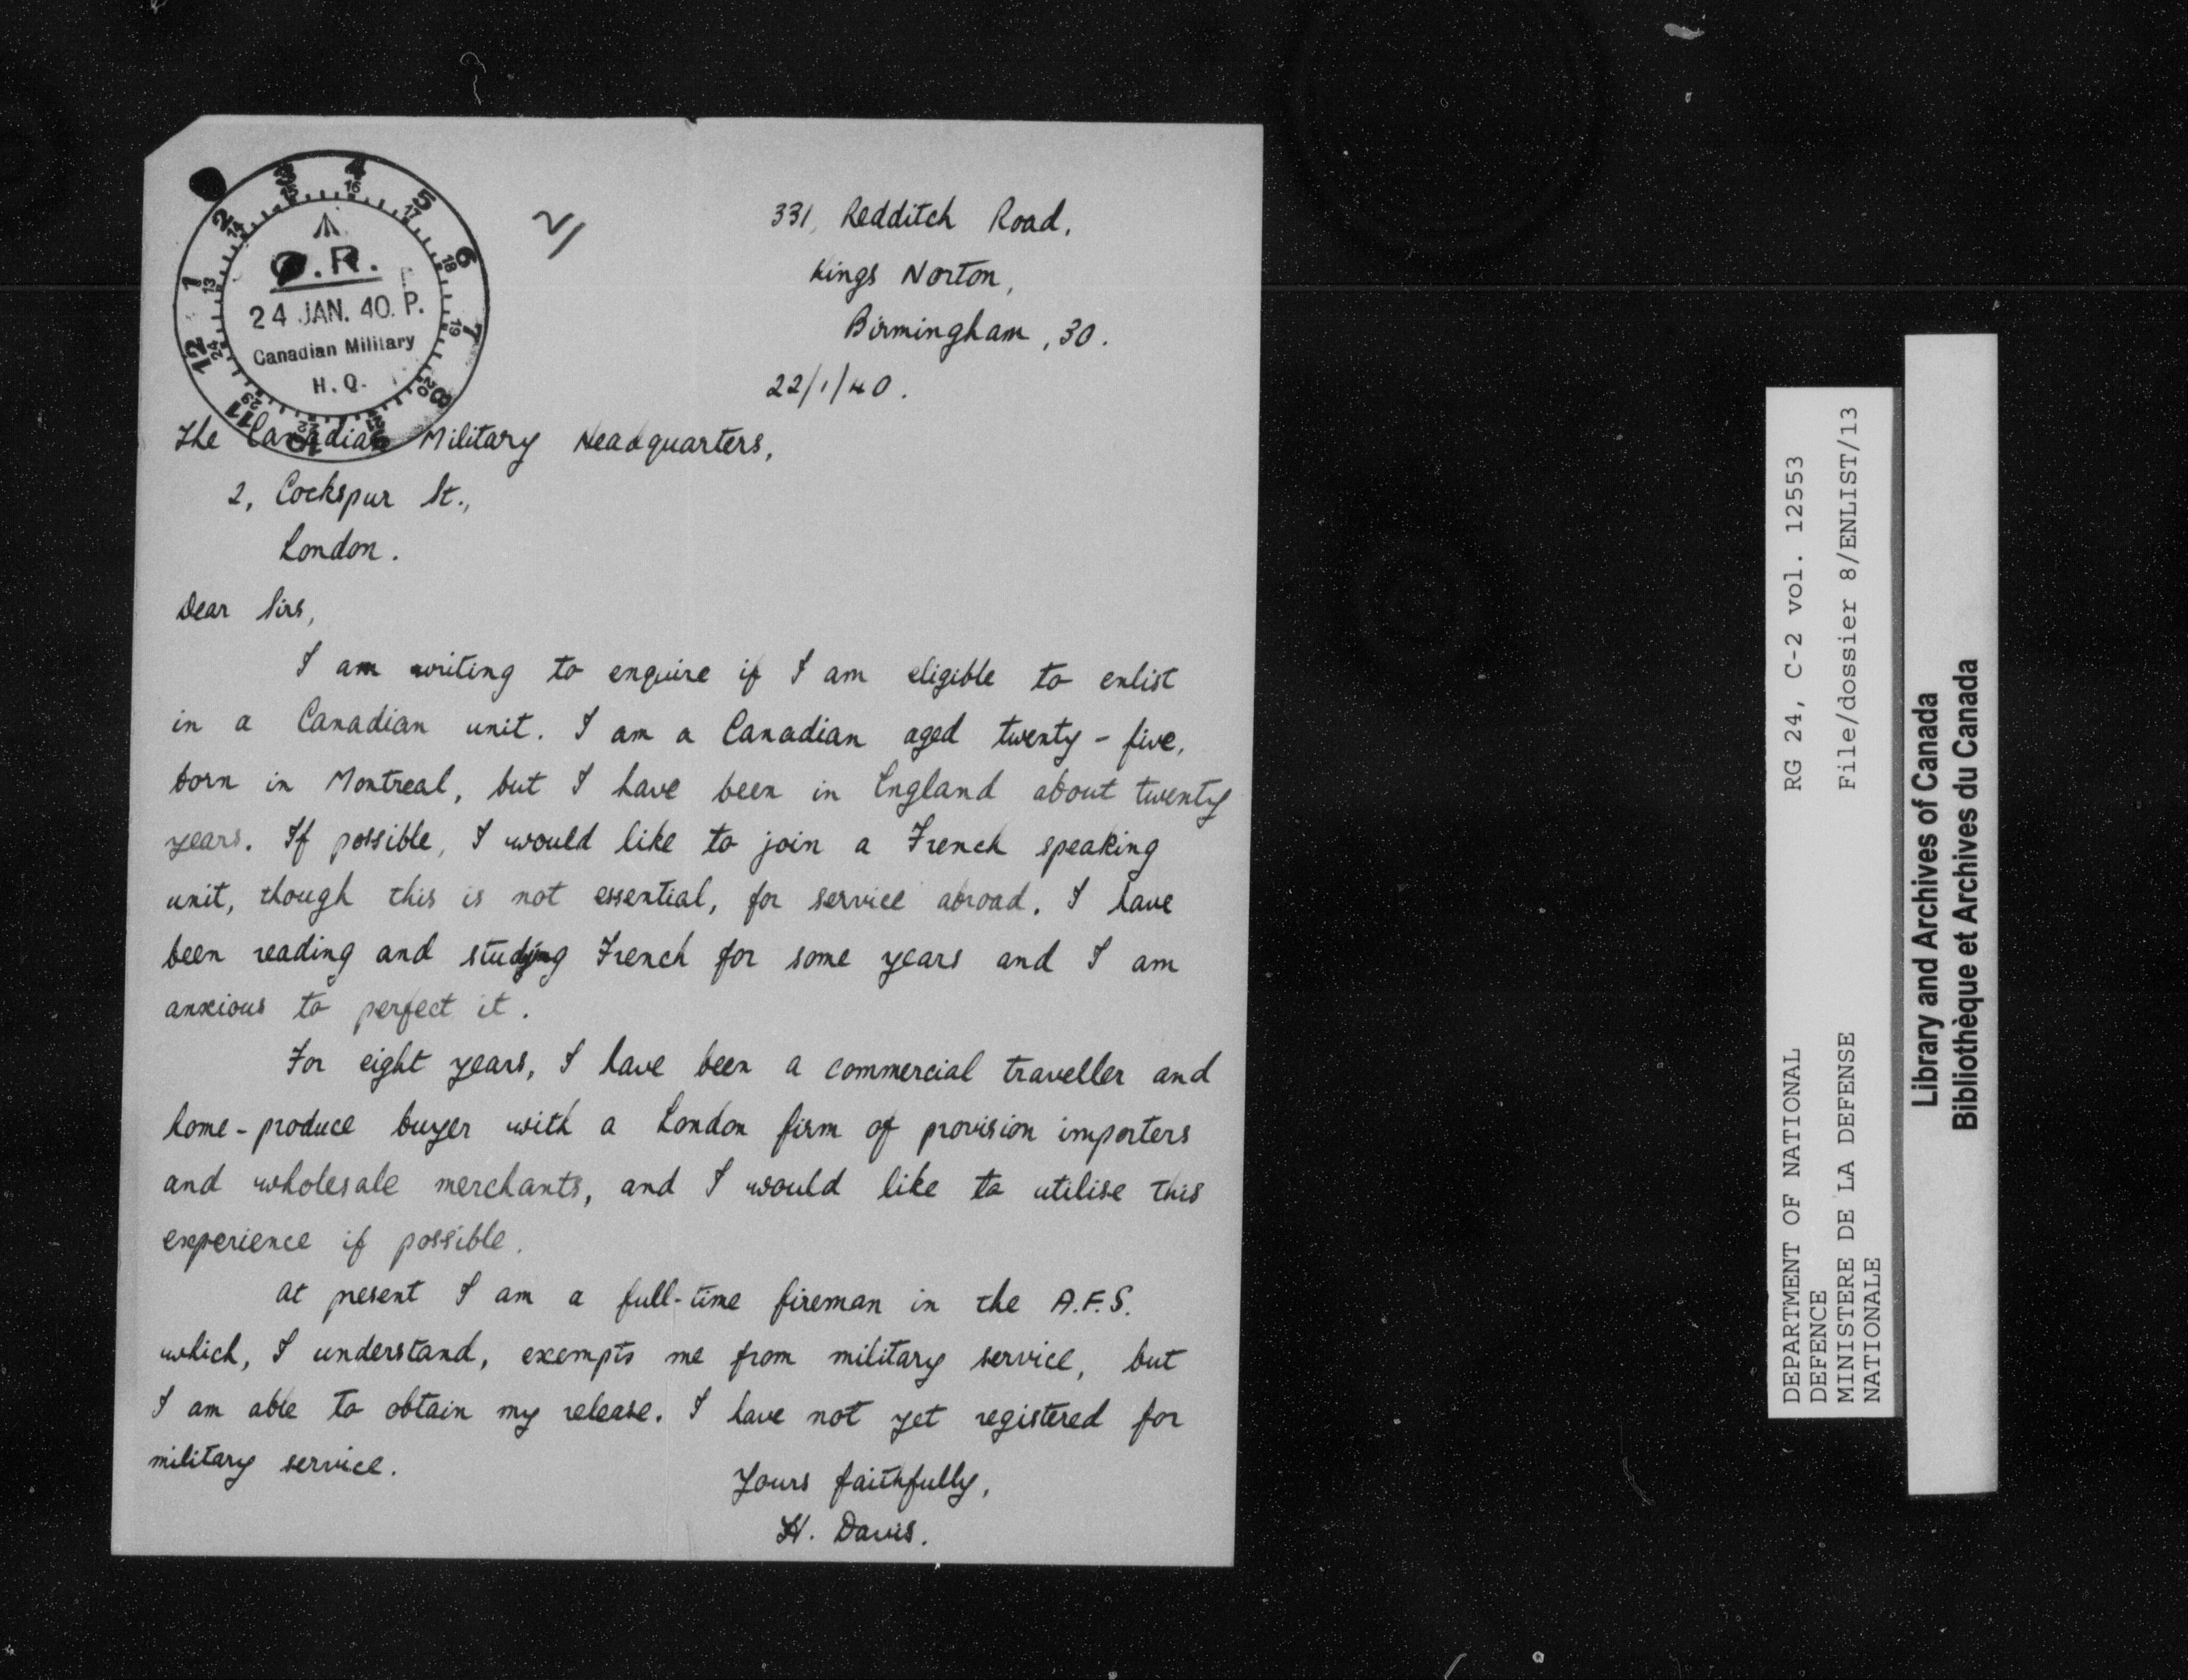 331, Redditch Road,
Kings Norton,
Birmingham, 30.
22/1/40.
3 4 5 6 7 8 10 11 12 1 2
15 16 17 18 19 20 21 22 23 24 13 14
O.R.
24 JAN. 40. P.
Canadian Military
H.Q.
The Canadian Military Headquarters,
2, Cockspur St.,
London.
Dear Sirs,
I am writing to enquire if I am eligible to enlist
in a Canadian unit. I am a Canadian aged twenty-five,
born in Montreal, but I have been in England about twenty
years. If possible, I would like to join a French speaking
unit, though this is not essential, for service abroad. I have
been reading and studying French for some years and I am
anxious to perfect it.
For eight years, I have been a commercial traveller and
home-produce buyer with a London firm of provision importers
and wholesale merchants, and I would like to utilise this
experience if possible.
At present I am a full-time fireman in the A.F.S.
which, I understand, exempts me from military service, but
I am able to obtain my release. I have not yet registered for
military service.
Yours faithfully,
H. Davis.
DEPARTMENT OF NATIONAL
DEFENCE
MINISTERE DE LA DEFENSE
NATIONALE
RG 24, C-2 vol. 12553
File/dossier 8/ENLIST/13
Library and Archives of Canada
Bibliothèque et Archives du Canada